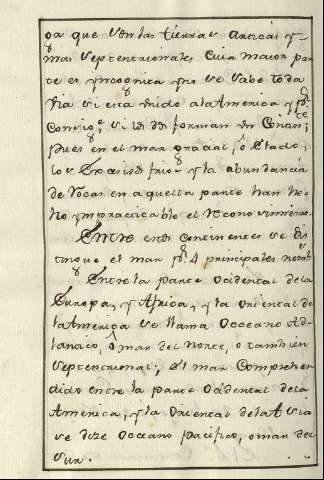 ga que son las tierras Articas y
mas Septentrionales cuia maior par
te es yncognita y no se sabe toda
via si esta unido a la America y pr
y la abundancia
de Rocas en aquesta parte han he
cho ympracticable el reconosimiento.
Entre estos continentes se dis
tingue el mar pr. 4 principales nomb
Entre la parte Ocidental de la
Europa, y Africa, y la Oriental de
la America se llama Occeano At
lantico, o mar del Norte, o tambien
Septentrional; El mar Comprehen
dido entre la parte Ocidental de la
America, y la Oriental del Asia
se dize Occeano Pacifico, o mar del
Sur.